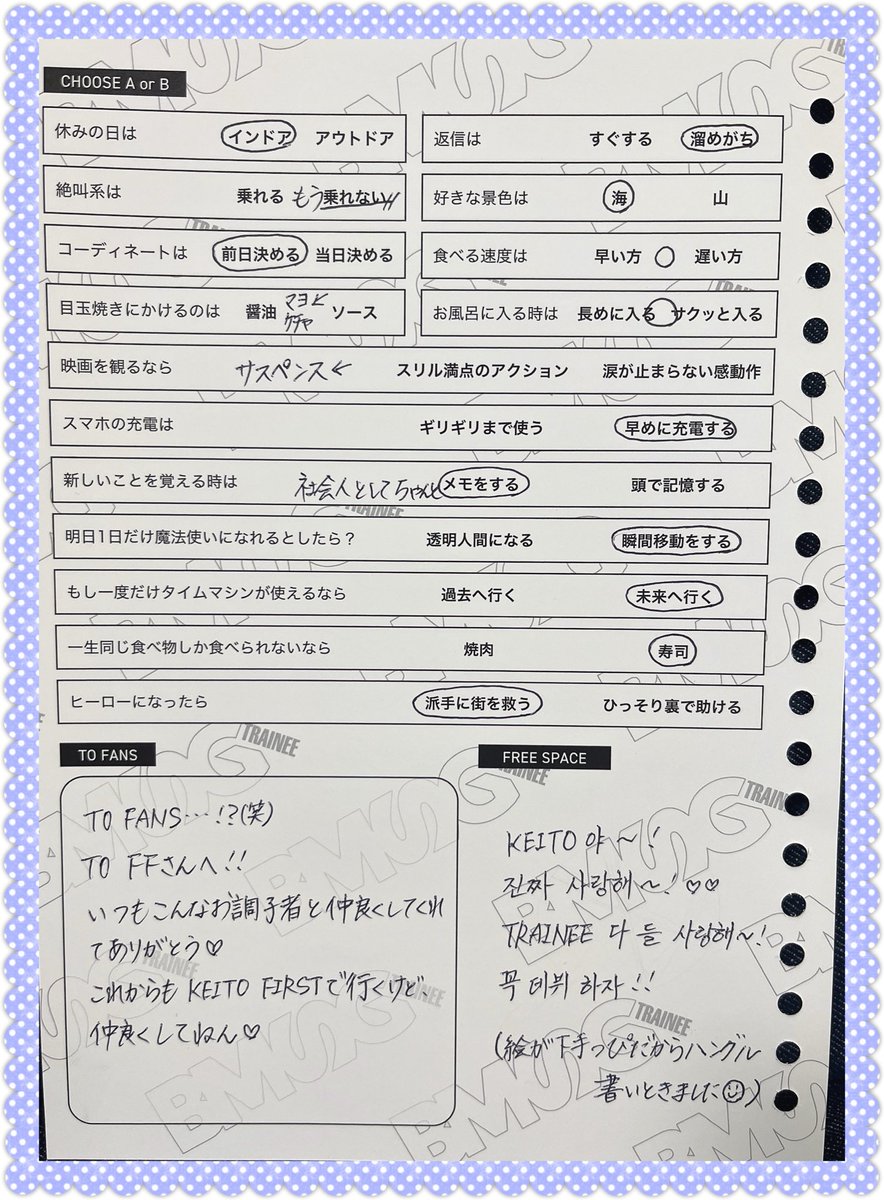 CHOOSE A or B
休みの日は インドア アウトドア
返信は すぐする 溜めがち
絶叫系は 乗れる もう乗れない
好きな景色は 海 山
コーディネートは 前日決める 当日決める
食べる速度は 早い方 遅い方
目玉焼きにかけるのは 醤油 マヨ ケチャ ソース
お風呂に入る時は 長めに入る サクッと入る
映画を観るなら サスペンス← スリル満点のアクション 涙が止まらない感動作
スマホの充電は ギリギリまで使う 早めに充電する
新しいことを覚える時は 社会人としてちゃんと メモをする 頭で記憶する
明日1日だけ魔法使いになれるとしたら? 透明人間になる 瞬間移動をする
もし一度だけタイムマシンが使えるなら 過去へ行く 未来へ行く
一生同じ食べ物しか食べられないなら 焼肉 寿司
ヒーローになったら 派手に街を救う ひっそり裏で助ける
TO FANS
TO FANS…!?(笑)
TO FFさんへ!!
いつもこんなお調子者と仲良くしてくれ
てありがとう♡
これからも KEITO FIRSTで行くけど、
仲良くしてねん♡
FREE SPACE
KEITO 야~!
진짜 사랑해~! ♡♡
TRAINEE 다 들 사랑해~!
꼭 데뷔 하자!!
(絵が下手っぴだからハングル
書いときました☺)
BMSG TRAINEE